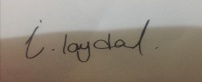 i. loydal.